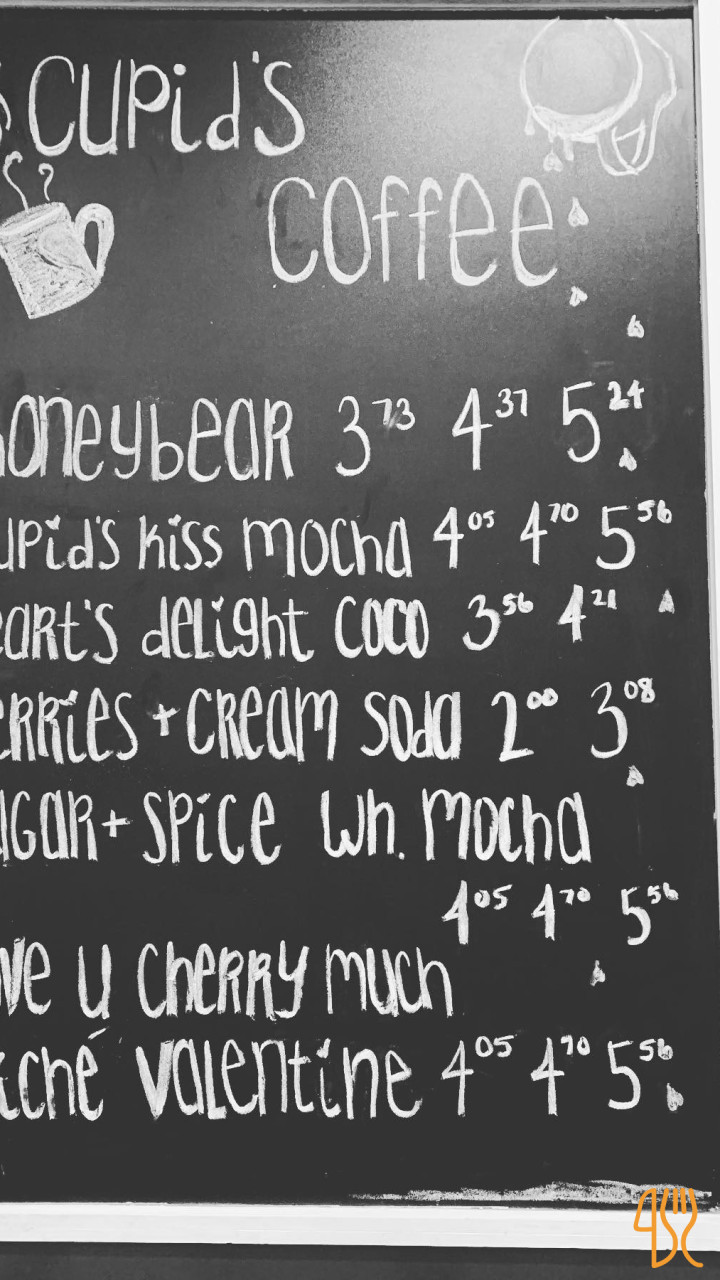 CUPid'S
COffee
oneybeaR 3 73 4 37 5 24
upid's kiss mocha 4 05 4 70 5 56
eaRt's deLight coco 3 56 4 21
eRRies + CReam soda 2 00 3 08
GaR + spice wh. mocha
4 05 4 70 5 56
ve u cheRRy much
iché vaLentine 4 05 4 70 5 56